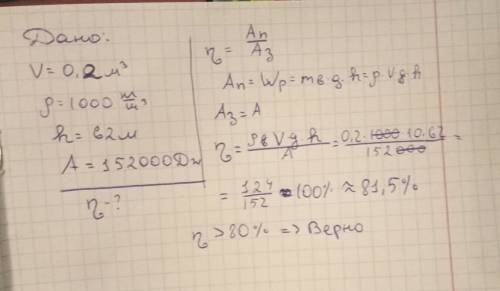 Дано:
V = 0,2 м³
ρ = 1000 кг/м³
h = 62 м
A = 152000 Дж
η - ?
η = Aп/Aз
Aп = Wp = mв·g·h = ρ·V·g·h
Aз = A
η = ρв V g h / A = 0,2·1000·10·62 / 152000 =
= 124/152 · 100% ≈ 81,5%
η > 80% => Верно